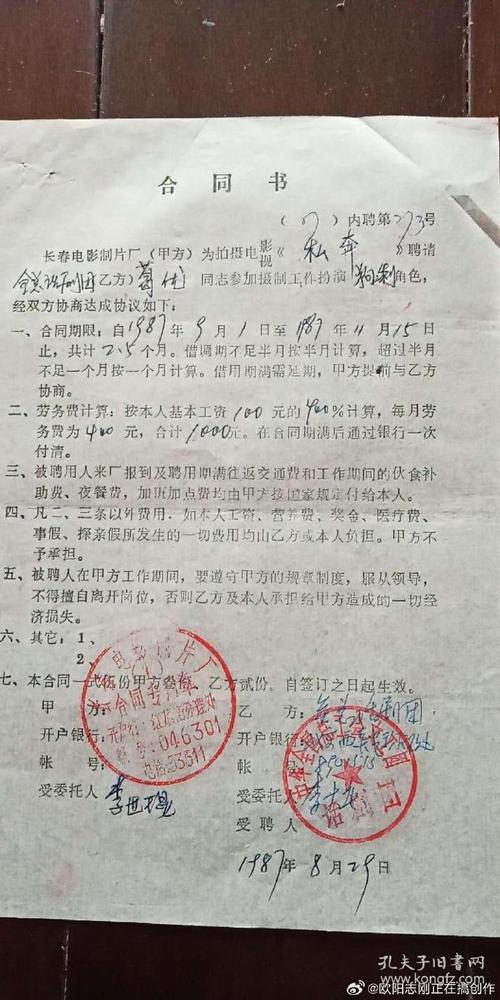 合同书
(87)内聘第273号
长春电影制片厂(甲方)为拍摄电影视《私奔》聘请
全总话剧团乙方)葛优同志参加摄制工作扮演 角色,
经双方协商达成协议如下:
一、合同期限:自1987年9月1日至1987年11月15日
止,共计2.5个月。借调期不足半月按半月计算,超过半月
不足一个月按一个月计算。借用期满需延期,甲方提前与乙方
协商。
二、劳务费计算:按本人基本工资100元的400%计算,每月劳
务费为400元,合计1000元。在合同期满后通过银行一次
付清。
三、被聘用人来厂报到及聘用期满往返交通费和工作期间的伙食补
助费、夜餐费,加班加点费均由甲方按国家规定付给本人。
四、凡二、三条以外费用.如本人工资、营养费、奖金、医疗费、
事假、探亲假所发生的一切费用均由乙方或本人负担。甲方不
予承担。
五、被聘人在甲方工作期间,要遵守甲方的规章制度,服从领导,
不得擅自离开岗位,否则乙方及本人承担给甲方造成的一切经
济损失。
六、其它:1、
2、
七、本合同一式 份甲方叁份,乙方贰份,自签订之日起生效。
甲方: 乙方:全总话剧团
开户银行: 开户银行:
帐号: 帐号:
受委托人 受委托人
受聘人
电影制片厂
合同专用章
开户行:红旗街分理处
帐号:046301
电话:53311
话剧团
1987年8月29日
孔夫子旧书网
www.kongfz.com
@欧阳志刚正在搞创作